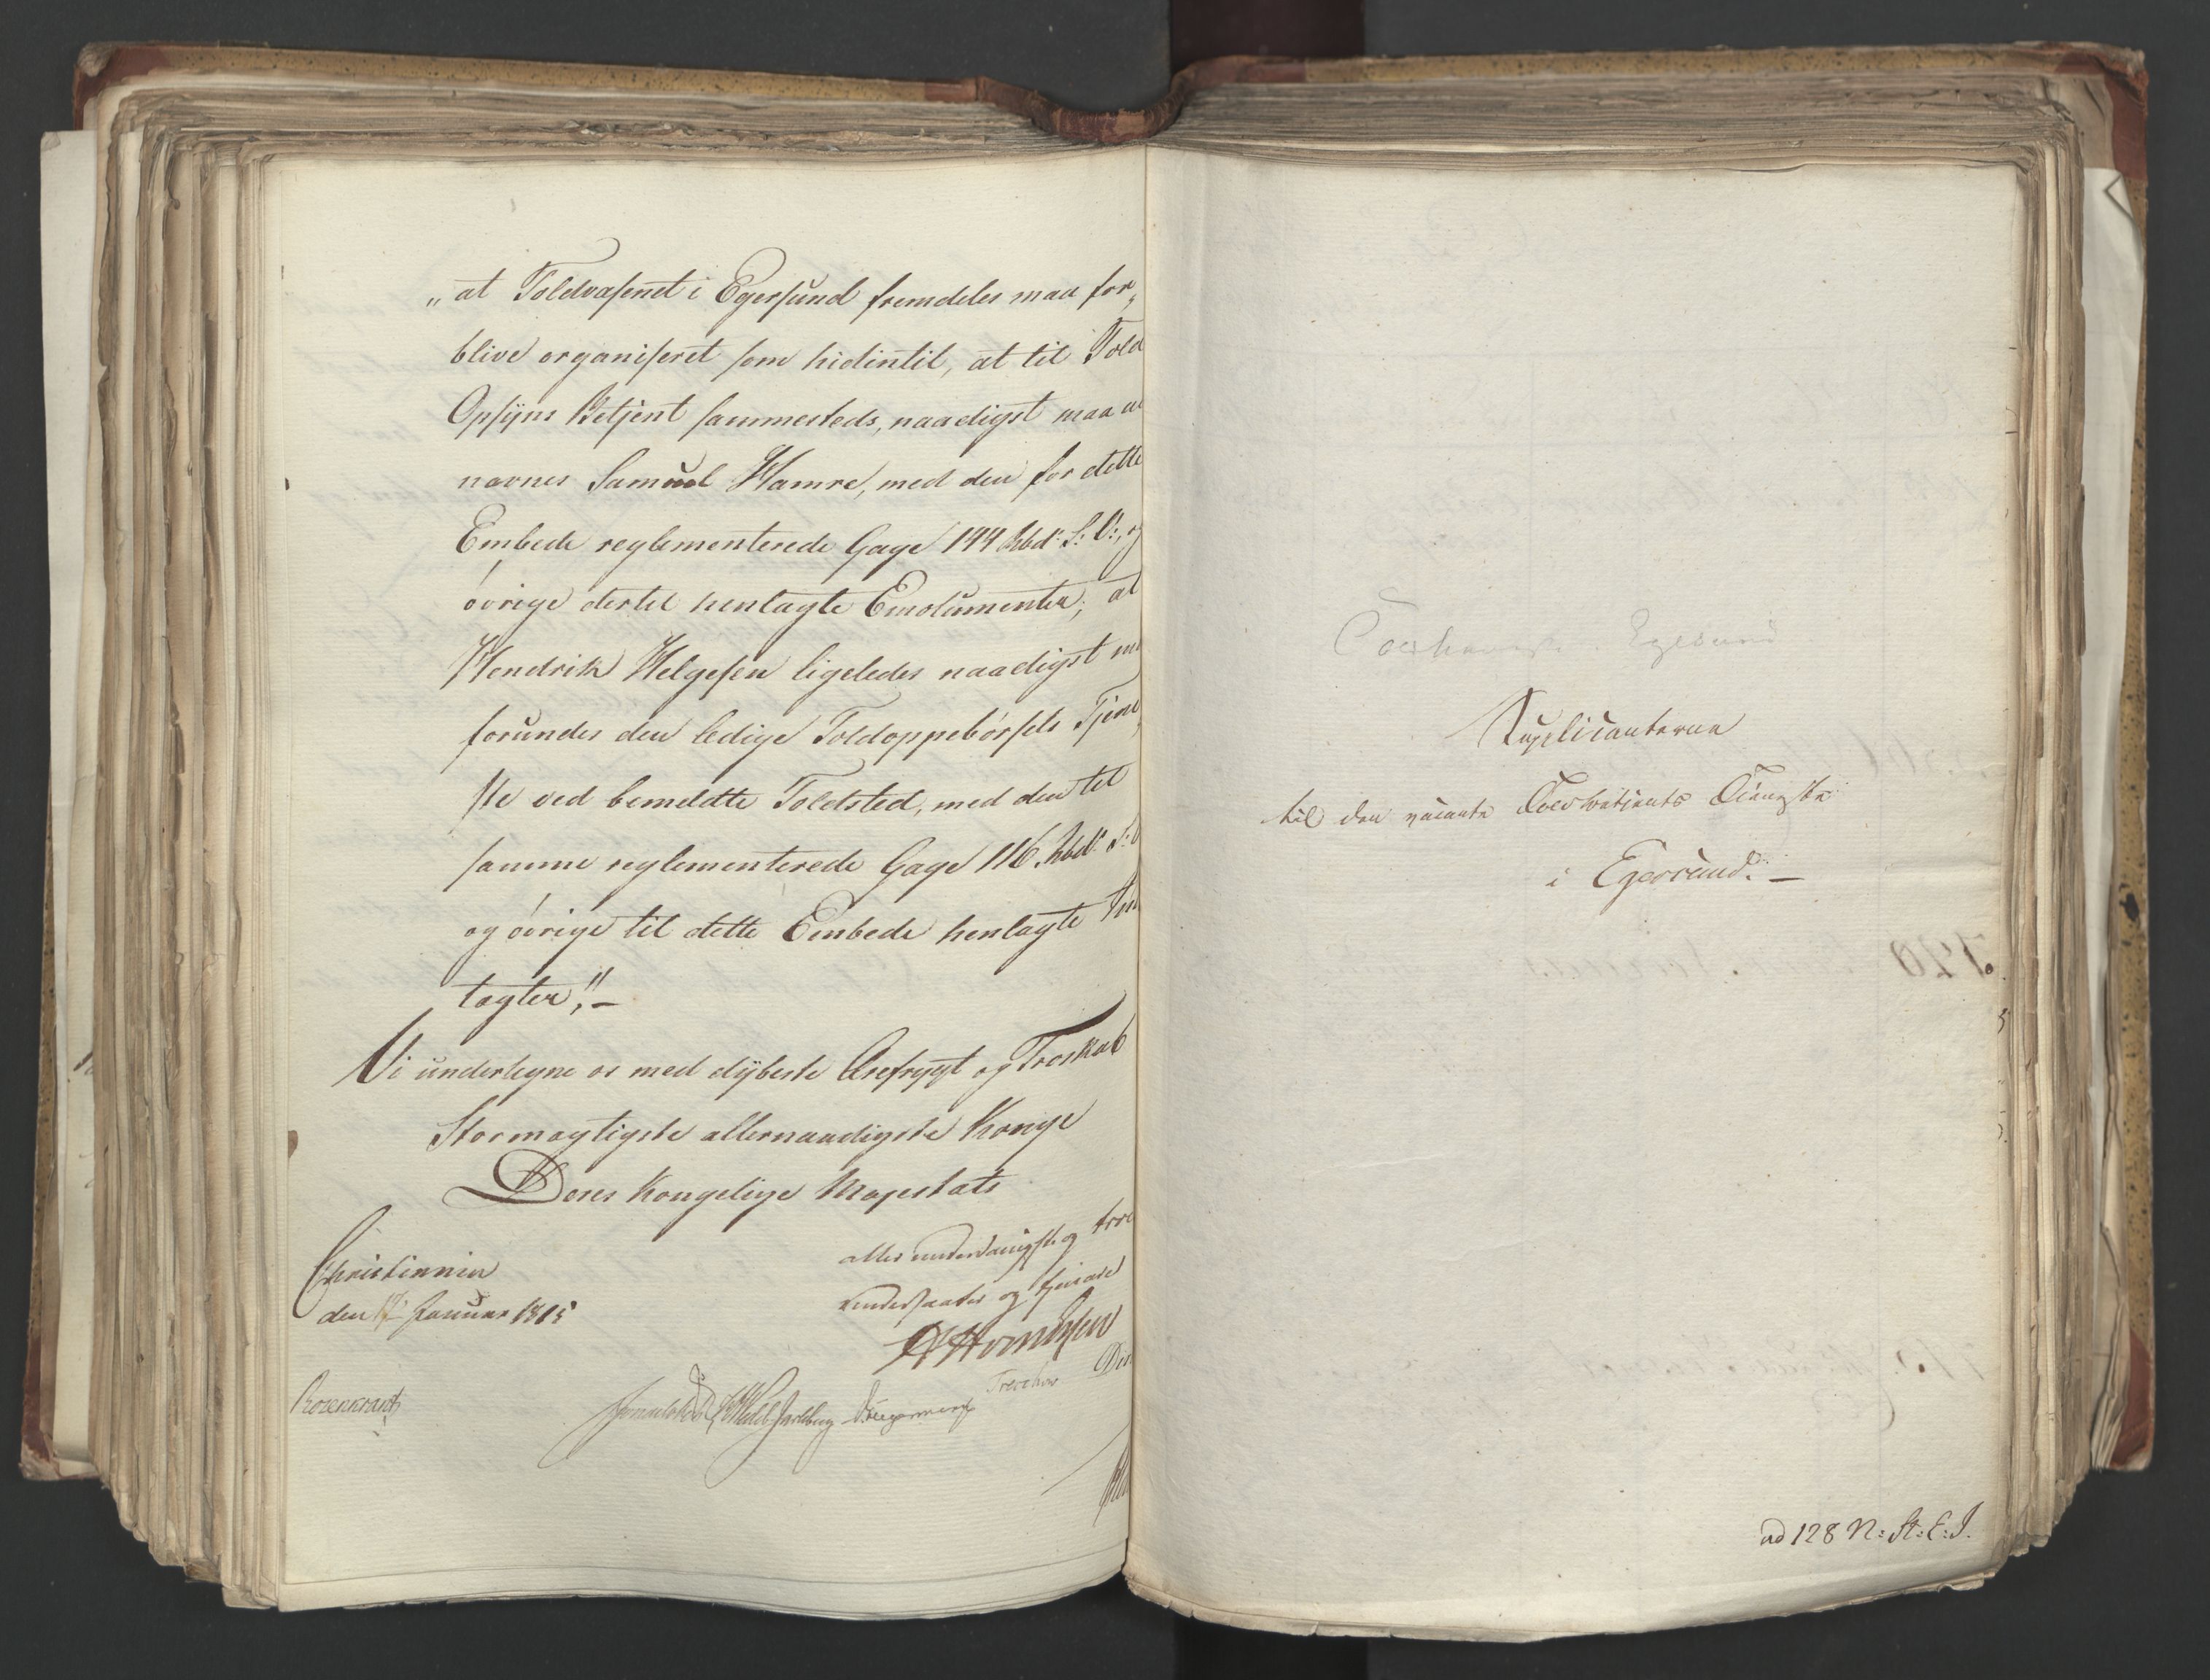 „at Toldvæsenet i Egersund fremdeles maa for„
blive organiseret som hidintil, at til Told
Opsÿns Betjent sammesteds, naadigst maa ud
nævnes Samuel Hamre, med den for dette
Embede reglementerede Gage 144 Rbd: S: V:, og
øvrige dertil henlagte Emolumenter; at
Hendrik Helgesen ligeledes naadigst m
forundes den ledige Toldoppebørsels Tjene„
ste ved bemeldte Toldsted, med den til
samme reglementerede Gage 116 Rbd: S: V
og øvrige til dette Embede henlagte Ind
tægter."—
Vi undertegne os med dÿbeste Ærefrygt og Troskab
Stormægtigste allernaadigste Konge
Deres Kongelige Majestæts
allerunderdanigste og troe
undersaatter og tjenere
Christiania
den Januar 1815
Rosenkrantz
Wedel Jarlsberg
Treschow
Egersund
Suplicanterne
til den vacante Toldbetjents Tieneste
i Egersund. —
ad 128 N: St: E: J.